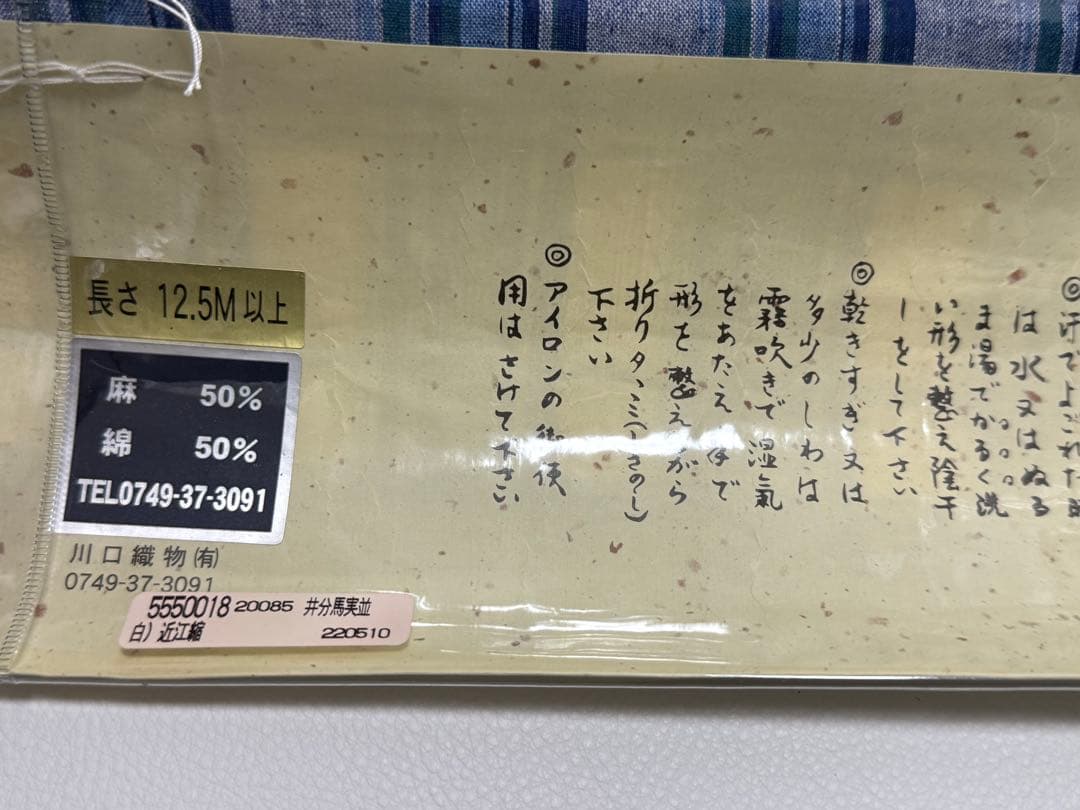 ◎汗でよごれた時
は水又はぬる
ま湯でかるく洗
い形を整え陰干
しをして下さい
◎乾きすぎ又は
多少のしわは
霧吹きで湿氣
をあたえ手で
形を整えながら
折りタヽミ(しきのし)
下さい
◎アイロンの御使
用はさけて下さい
長さ 12.5M以上
麻 50%
綿 50%
TEL0749-37-3091
川口織物㈲
0749-37-3091
5550018 20085 井分馬実並
白) 近江縮 220510